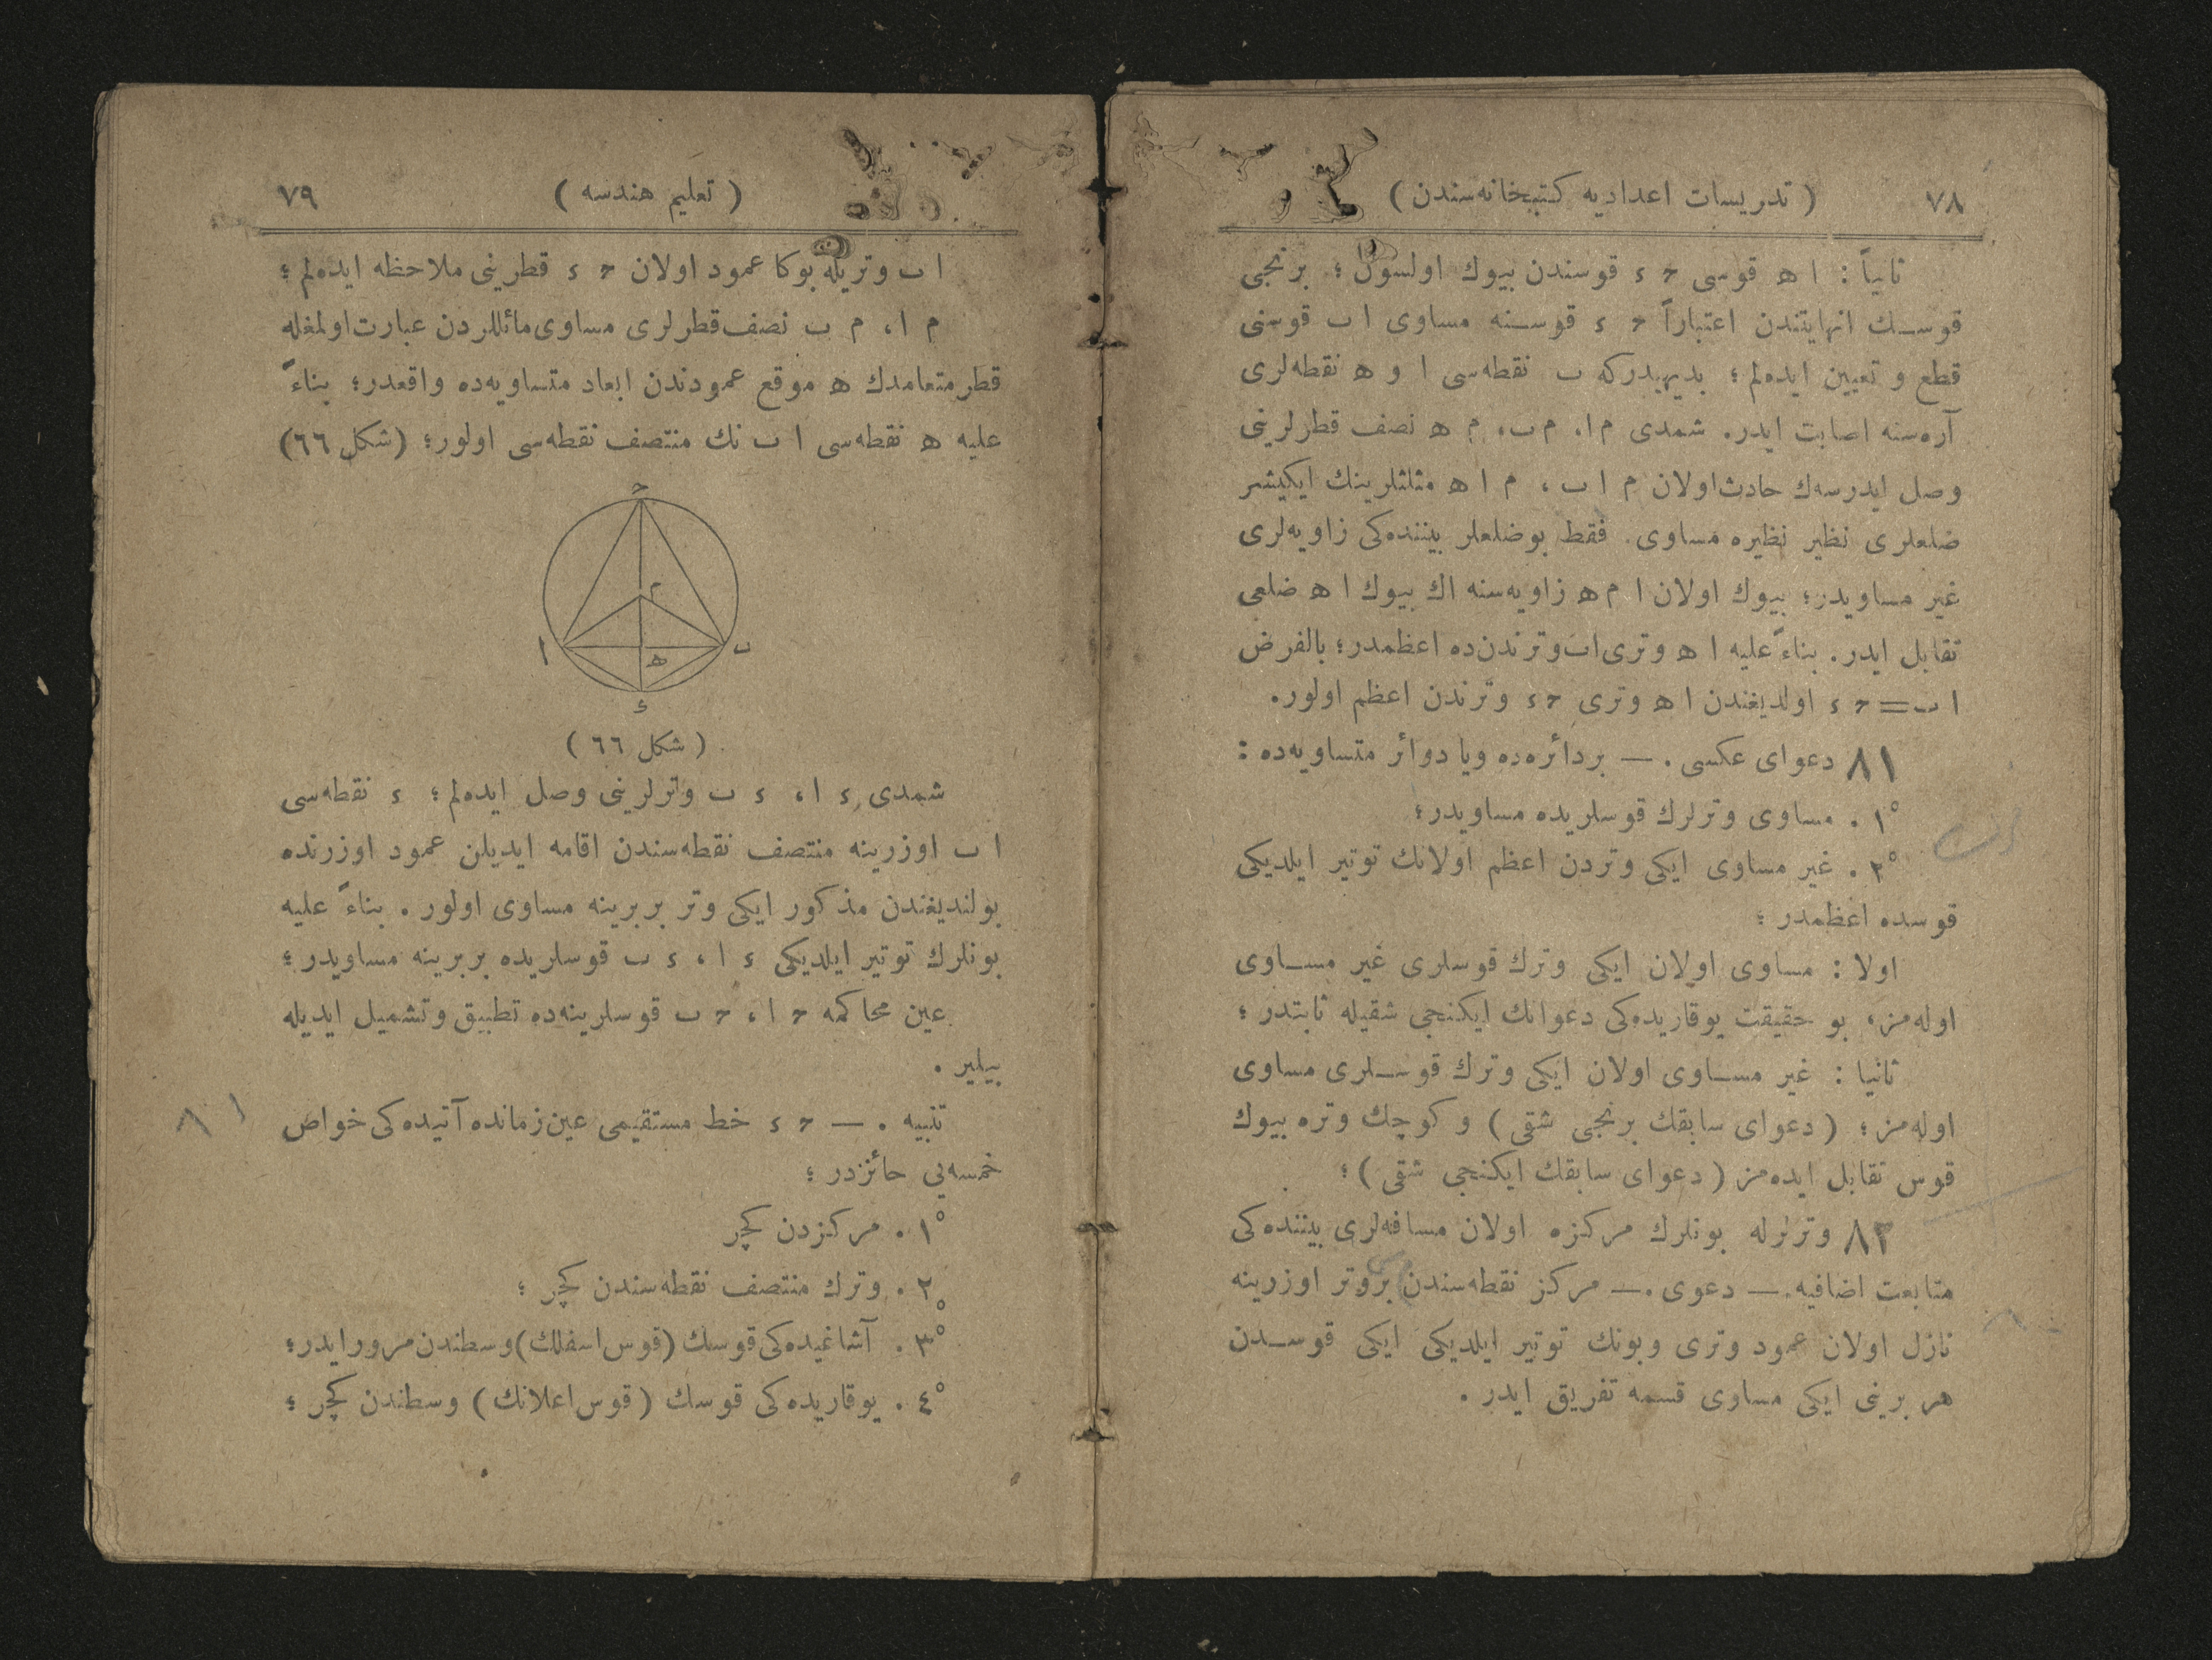 ٧٨
( تدريسات اعداديه كتبخانه‌سندن )
ثانياً : ا ه قوسى ح ء قوسندن بيوك اولسون ؛ برنجى
قوسك انهايتندن اعتباراً ح ء قوسنه مساوى ا ب قوسنى
قطع و تعيين ايده‌لم ؛ بديهيدركه ب نقطه‌سى ا و ه نقطه‌لرى
آره‌سنه اصابت ايدر. شمدى م ا، م ب، م ه نصف قطرلرينى
وصل ايدرسه‌ك حادث اولان م ا ب ، م ا ه مثلثلرينك ايكيشر
ضلعلرى نظير نظيره مساوى. فقط بوضلعلر بيننده‌كى زاويه‌لرى
غير مساويدر؛ بيوك اولان ا م ه زاويه‌سنه اك بيوك ا ه ضلعى
تقابل ايدر. بناءً عليه ا ه وترى ا ب وترندن‌ده اعظمدر؛ بالفرض
ا ب = ح ء اولديغندن ا ه وترى ح ء وترندن اعظم اولور.
٨١ دعواى عكسى . — بردائره‌ده ويا دوائر متساويه‌ده :
١° . مساوى وترلرك قوسلريده مساويدر؛
٢° . غير مساوى ايكى وتردن اعظم اولانك توتير ايلديكى
قوسده اعظمدر ؛
اولا : مساوى اولان ايكى وترك قوسلرى غير مساوى
اوله‌مز، بو حقيقت يوقاريده‌كى دعوانك ايكنجى شقيله ثابتدر ؛
ثانيا : غير مساوى اولان ايكى وترك قوسلرى مساوى
اوله‌مز ؛ ( دعواى سابقك برنجى شقى ) و كوچك وتره بيوك
قوس تقابل ايده‌مز ( دعواى سابقك ايكنجى شقى ) ؛
٨٢ وترلرله بونلرك مركزه اولان مسافه‌لرى بيننده‌كى
متابعت اضافيه. — دعوى. — مركز نقطه‌سندن بروتر اوزرينه
نازل اولان عمود وترى وبونك توتير ايلديكى ايكى قوسدن
هر برينى ايكى مساوى قسمه تفريق ايدر .
( تعليم هندسه )
٧٩
ا ب وتريله بوكا عمود اولان ح ء قطرينى ملاحظه ايده‌لم ؛
م ا، م ب نصف قطرلرى مساوى مائللردن عبارت اولمغله
قطر متعامدك ه موقع عمودندن ابعاد متساويه‌ده واقعدر؛ بناءً
عليه ه نقطه‌سى ا ب نك منتصف نقطه‌سى اولور؛ (شكل ٦٦)
ح
م
ا
ب
ه
ء
( شكل ٦٦ )
شمدى ء ا، ء ب وترلرينى وصل ايده‌لم ؛ ء نقطه‌سى
ا ب اوزرينه منتصف نقطه‌سندن اقامه ايديلن عمود اوزرنده
بولنديغندن مذكور ايكى وتر بربرينه مساوى اولور . بناءً عليه
بونلرك توتير ايلديكى ء ا ، ء ب قوسلريده بربرينه مساويدر ؛
عين محاكمه ح ا ، ح ب قوسلرينه‌ده تطبيق وتشميل ايديله
بيلير .
تنبيه . — ح ء خط مستقيمى عين زمانده آتيده‌كى خواص
خمسه‌يى حائزدر ؛
١° . مركزدن كچر
٢° . وترك منتصف نقطه‌سندن كچر ؛
٣° . آشاغيده‌كى قوسك (قوس اسفلك) وسطندن مرور ايدر؛
٤° . يوقاريده‌كى قوسك ( قوس اعلانك ) وسطندن كچر ؛